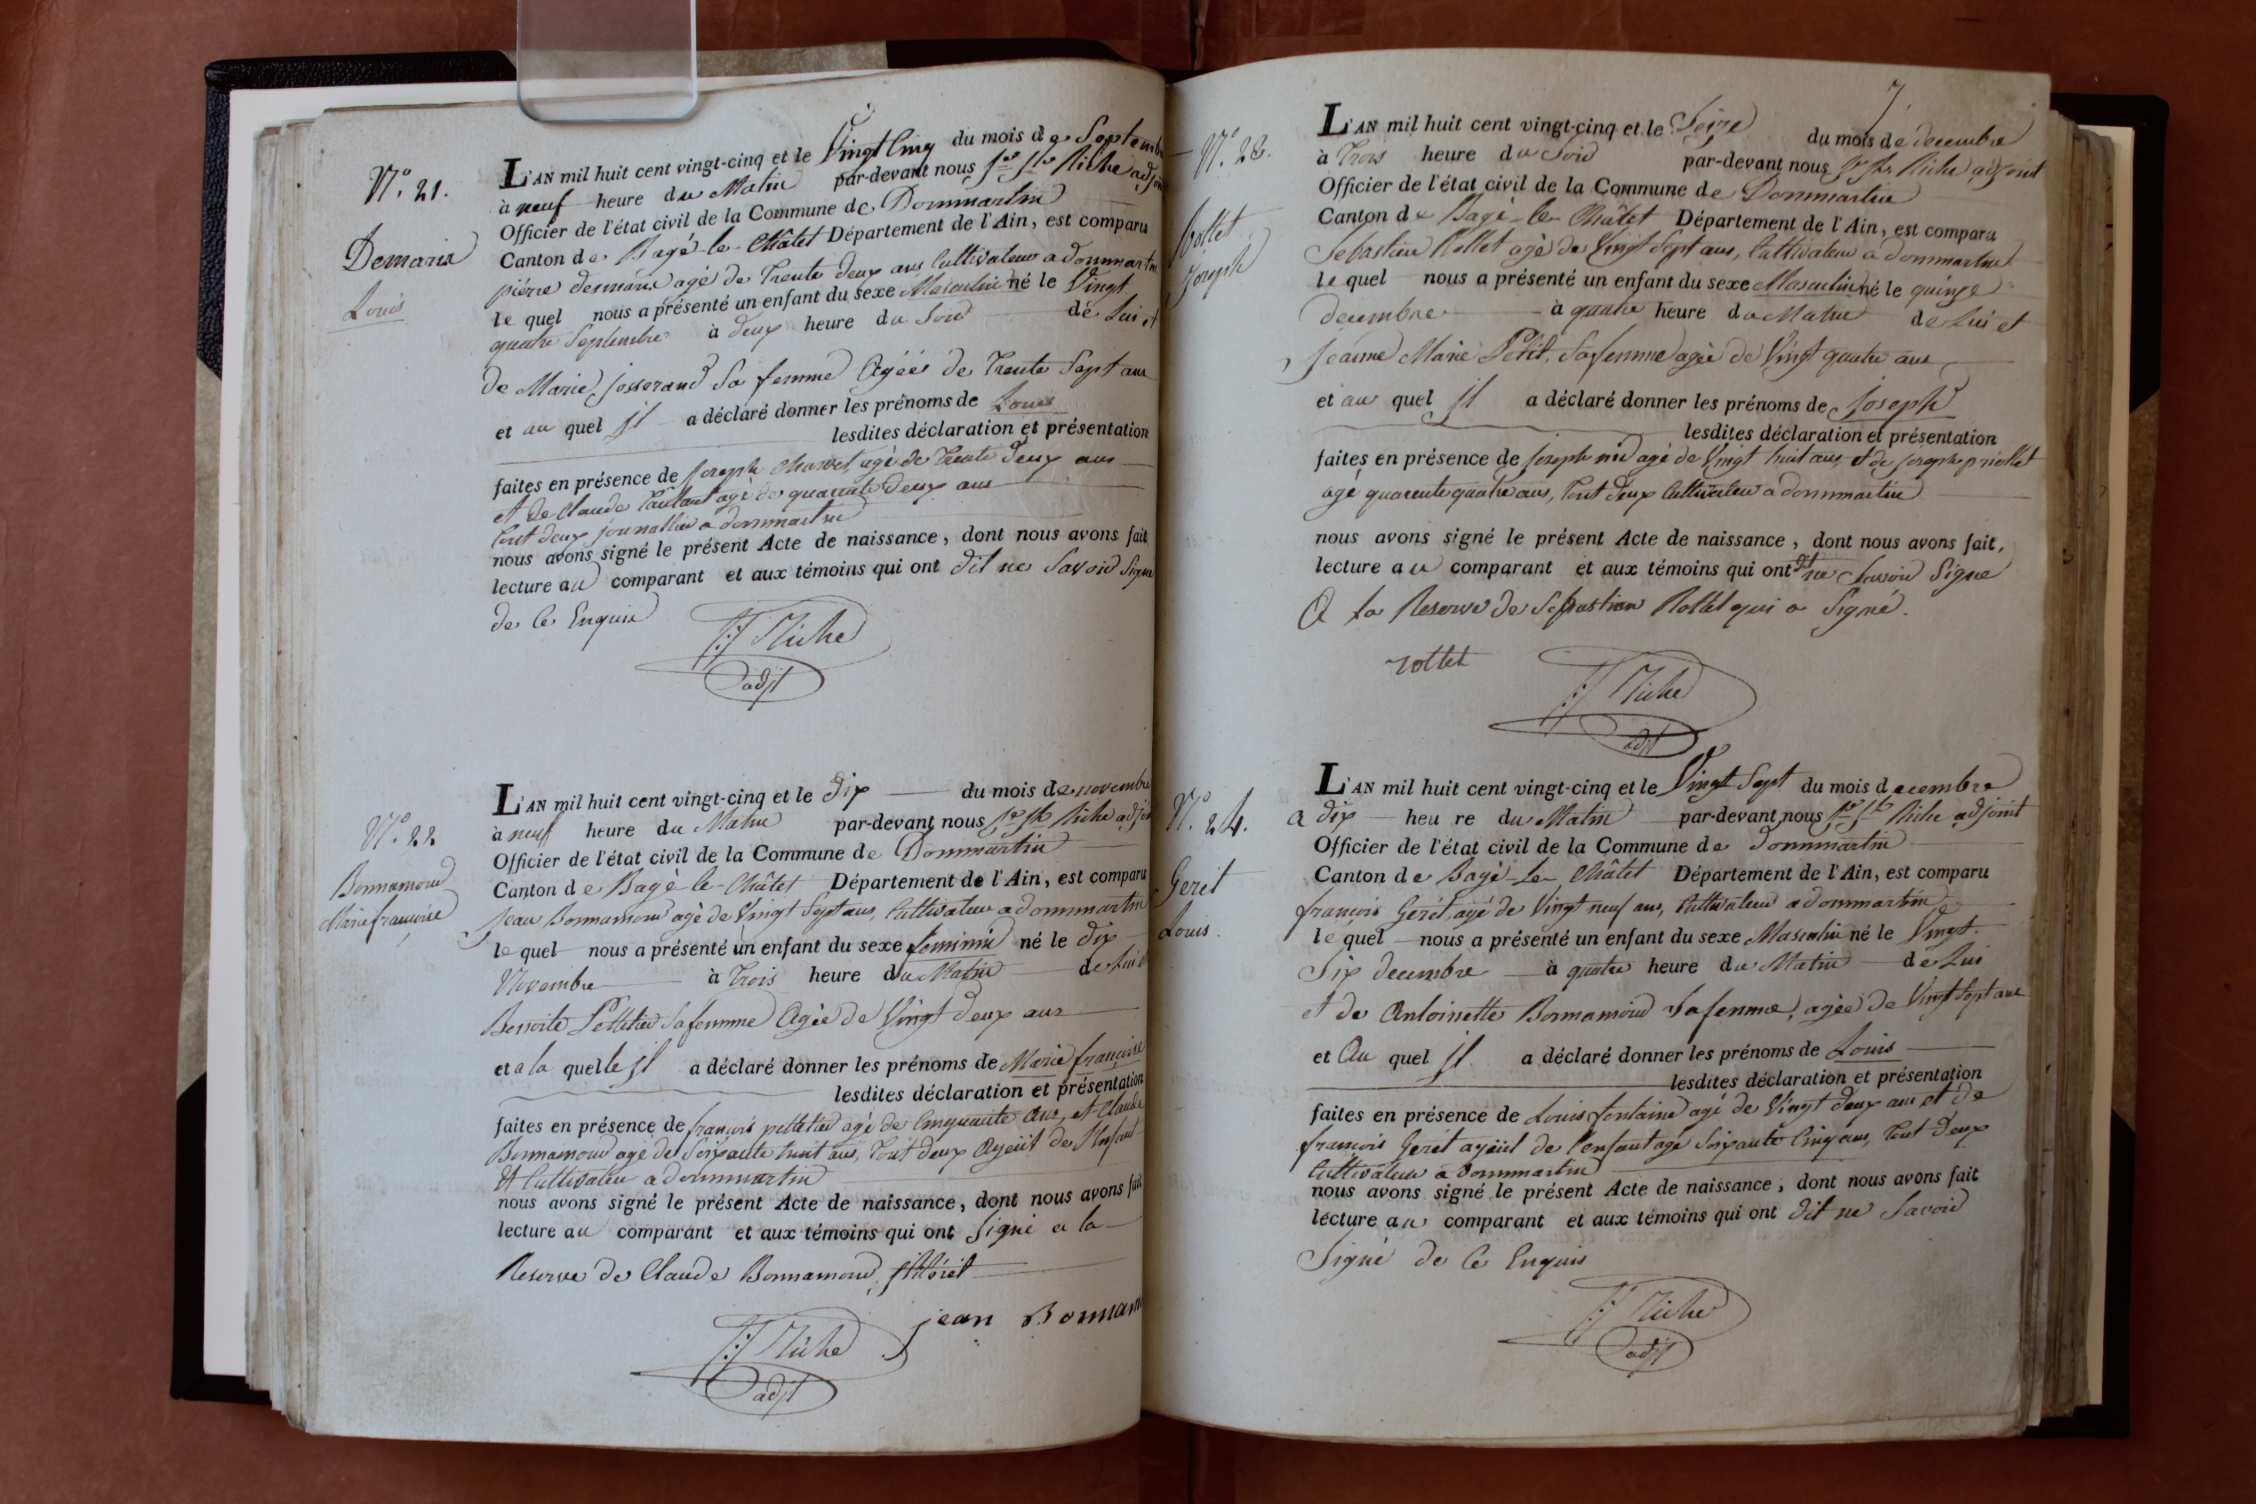 N.° 21.
Demaria
Louis
L'AN mil huit cent vingt-cinq et le Vingt Cinq du mois de Septembre
à neuf heure du Matin par-devant nous Riche adjoint
Officier de l'état civil de la Commune de Dommartin
Canton de Bagé-le-Châtel Département de l'Ain, est comparu
pierre demaria agé de Trente deux ans Cultivateur a dommartin
le quel nous a présenté un enfant du sexe Masculin né le Vingt
quatre Septembre à deux heure du Soir de Lui et
de Marie josserand Sa femme Agéé de Trente Sept ans
et au quel il a déclaré donner les prénoms de Louis
lesdites déclaration et présentation
faites en présence de joseph agé de Trente deux ans
et de Claude agé de quarante deux ans
tout deux journallier a dommartin
nous avons signé le présent Acte de naissance, dont nous avons fait
lecture au comparant et aux témoins qui ont dit ne Savoir Signe
de Ce Enquis
Riche
adjt
N.° 22
Bonnamour
Marie françoise
L'AN mil huit cent vingt-cinq et le dix du mois de novembre
à neuf heure du Matin par-devant nous Riche adjoint
Officier de l'état civil de la Commune de Dommartin
Canton de Bagé-le-Châtel Département de l'Ain, est comparu
Jean Bonnamour agé de Vingt Sept ans, Cultivateur a dommartin
le quel nous a présenté un enfant du sexe feminin né le dix
Novembre à Trois heure du Matin de Lui et
Benoite Pelletier Sa femme Agée de Vingt deux ans
et a la quelle il a déclaré donner les prénoms de Marie françoise
lesdites déclaration et présentation
faites en présence de françois pelletier agé de Cinquante ans, et Claude
Bonnamour agé de Soixante huit ans, Tout deux Ayeüt de l'Enfant
et Cultivateur a dommartin
nous avons signé le présent Acte de naissance, dont nous avons fait
lecture au comparant et aux témoins qui ont Signé a la
Reserve de Claude Bonnamour
jean Bonnam
Riche
adjt
7
N.° 23.
Rollet
Joseph
L'AN mil huit cent vingt-cinq et le Seize du mois de decembre
à Trois heure du Soir par-devant nous Riche adjoint
Officier de l'état civil de la Commune de Dommartin
Canton de Bagé-le-Châtel Département de l'Ain, est comparu
Sebastien Rollet agé de Vingt Sept ans, Cultivateur a dommartin
le quel nous a présenté un enfant du sexe Masculin né le quinze
decembre à quatre heure du Matin de Lui et
Jeanne Marie Petit, Sa femme agée de Vingt quatre ans
et au quel il a déclaré donner les prénoms de Joseph
lesdites déclaration et présentation
faites en présence de joseph agé de Vingt huit ans, et de joseph
agé quarente quatre ans, Tout deux Cultivateur a dommartin
nous avons signé le présent Acte de naissance, dont nous avons fait,
lecture au comparant et aux témoins qui ont dit ne Savoir Signe
A La Reserve de Sebastien Rollet qui a Signé.
rollet
Riche
adjt
N.° 24.
Geret
Louis.
L'AN mil huit cent vingt-cinq et le Vingt Sept du mois decembre
a dix heu re du Matin par-devant nous Riche adjoint
Officier de l'état civil de la Commune de dommartin
Canton de Bagé-Le-Châtel Département de l'Ain, est comparu
françois Gerét, agé de Vingt neuf ans, Cultivateur a dommartin
le quel nous a présenté un enfant du sexe Masculin né le Vingt
Six decembre à quatre heure du Matin de Lui
et de Antoinette Bonnamour Sa femme, agée de Vingt Sept ans
et Au quel il a déclaré donner les prénoms de Louis
lesdites déclaration et présentation
faites en présence de Louis fontaine agé de Vingt deux ans et de
françois Gerét ayeüil de l'enfant agé Soixante Cinq ans, Tout deux
Cultivateur a dommartin
nous avons signé le présent Acte de naissance, dont nous avons fait
lecture au comparant et aux témoins qui ont dit ne Savoir
Signé de Ce Enquis
Riche
adjt